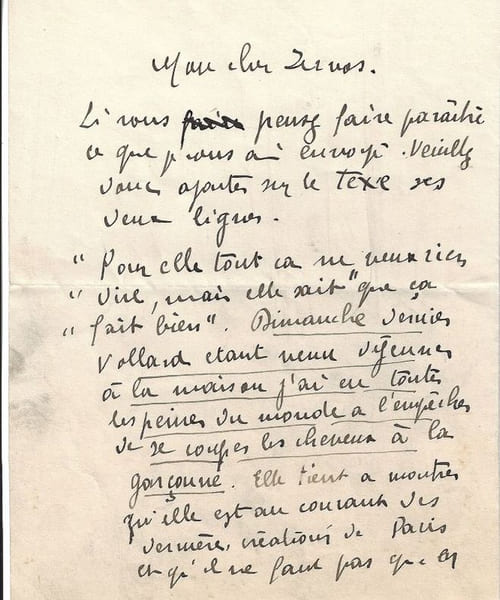 Mon cher Zervos.
Si vous pensez faire paraître
ce que je vous ai envoyé. Veuillez
donc ajouter sur le texe ses
deux lignes.
"Pour elle tout ca ne veux rien
"dire, mais elle sait "que ça
"fait bien". Dimanche dernier
Vollard etant venu déjeuner
à la maison j'ai eu toutes
les peines du monde a l'empêcher
de se couper les cheveux à la
garçonne. Elle tient a montrer
qu'elle est au courant des
dernières créations de Paris
et qu'il ne faut pas que